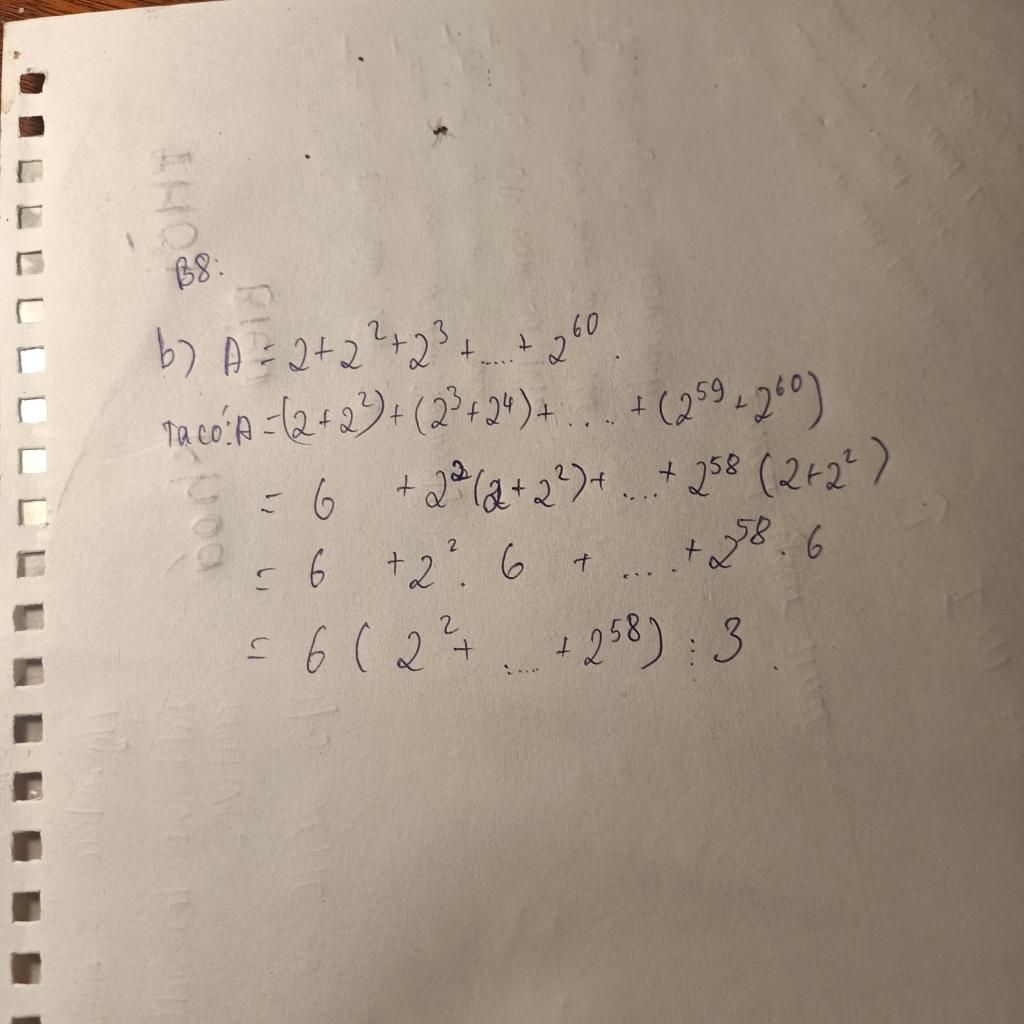 B8:
b) A = 2+2²+2³+....+ 2⁶⁰.
Ta có: A = (2+2²)+(2³+2⁴)+.....+(2⁵⁹+2⁶⁰)
= 6 + 2²(2+2²)+....+2⁵⁸(2+2²)
= 6 + 2². 6 + .....+2⁵⁸. 6
= 6 ( 2²+ ..... +2⁵⁸) ⋮ 3.